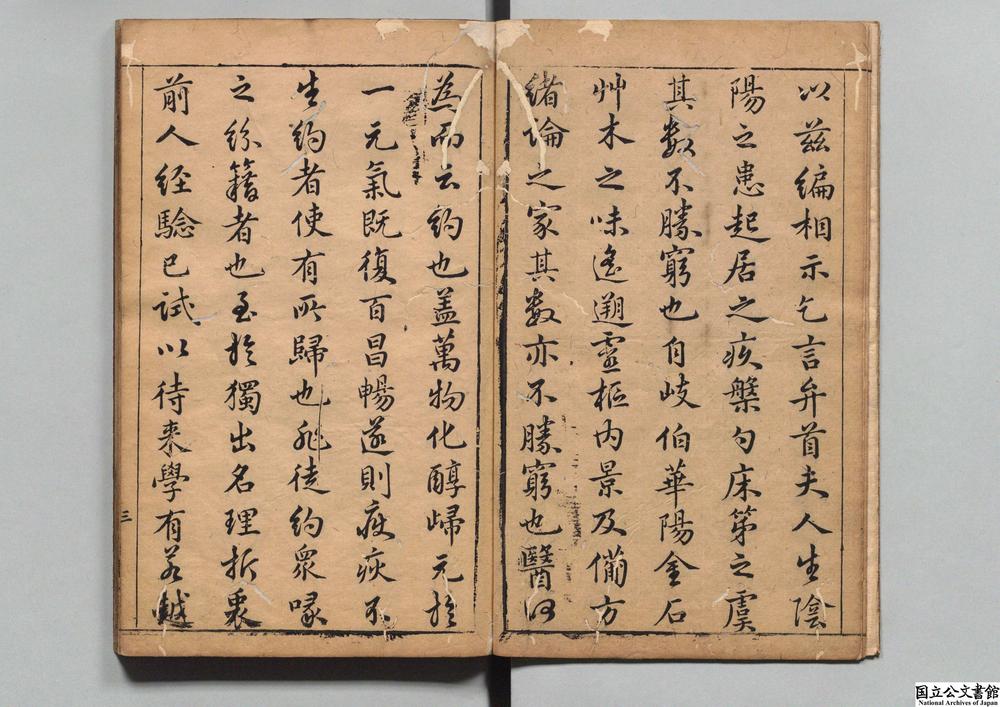 以茲編相示乞言弁首夫人生陰
陽之患起居之疾槃勺床笫之虞
其數不勝窮也自岐伯華陽金石
艸木之味遙遡靈樞內景及備方
緒論之家其數亦不勝窮也醫何
為而云約也蓋萬物化醇歸元於
一元氣既復百昌暢遂則疵疢不
生約者使有所歸也非徒約眾喙
之綜籍者也至於獨出名理折衷
前人経驗已試以待来學有若越
三
国立公文書館
National Archives of Japan